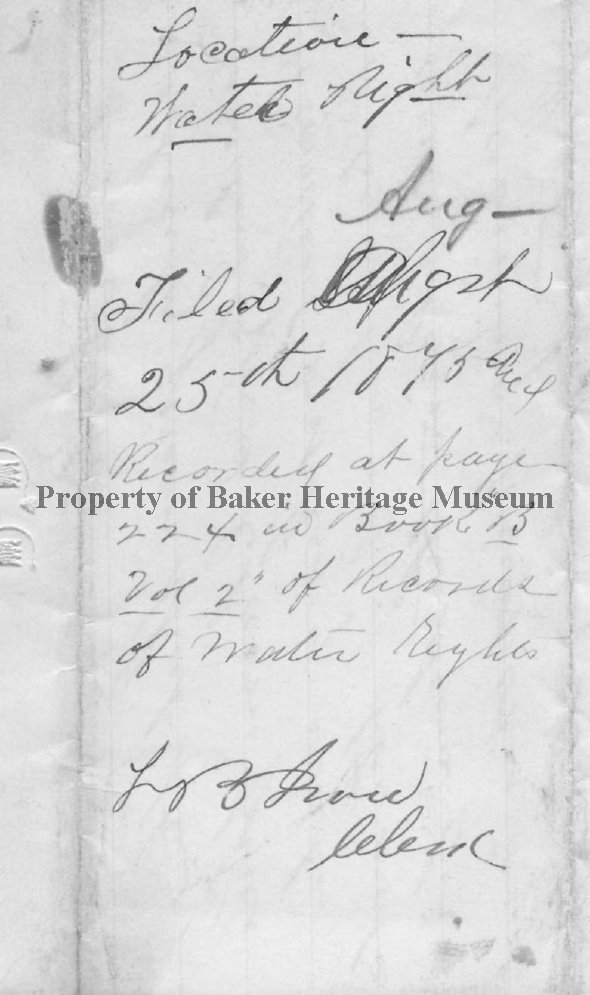 Location —
Water Right
Aug —
Filed
25th 1875 and
Recorded at page
Property of Baker Heritage Museum
224 in Book "B
Vol 2" of Records
of Water Rights
L B
Clerk